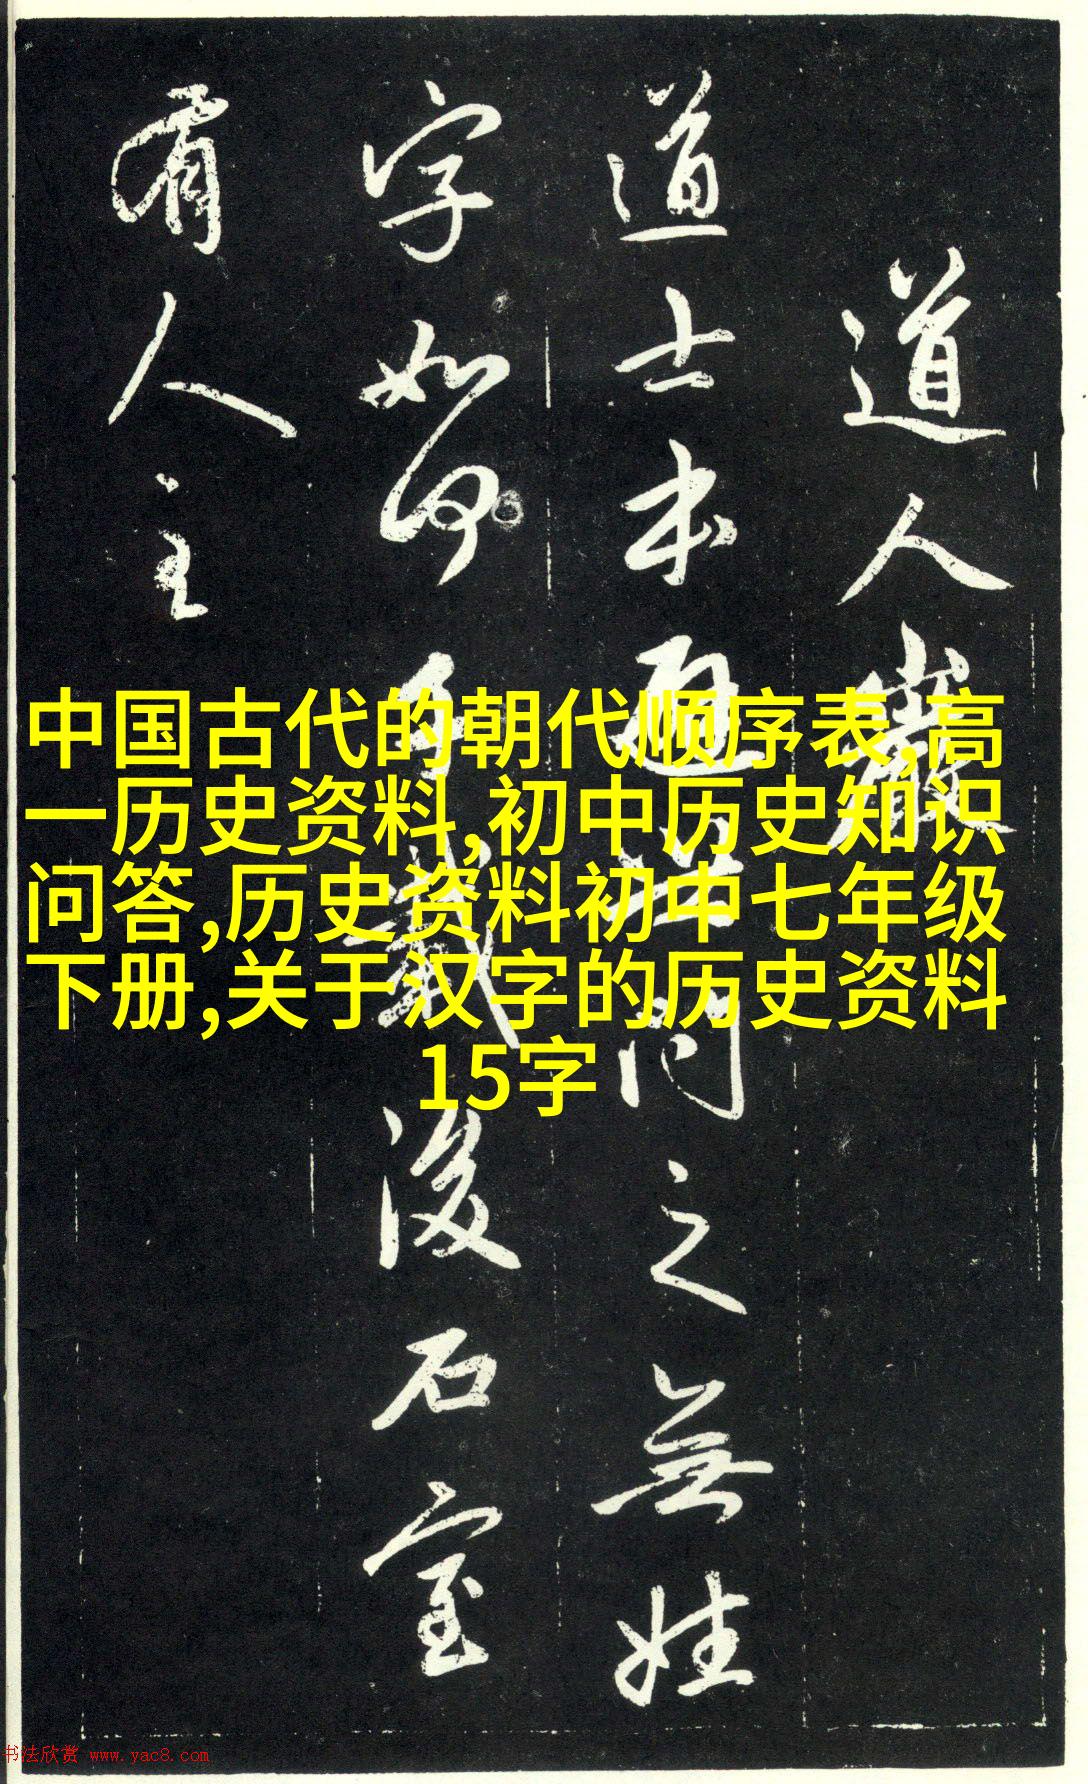 道人巖
道士本通世問之無姓
字如何千載後石室
有人主
中国古代的朝代顺序表,高
一历史资料,初中历史知识
问答,历史资料初中七年级
下册,关于汉字的历史资料
15字
书法欣赏 www.yac8.com